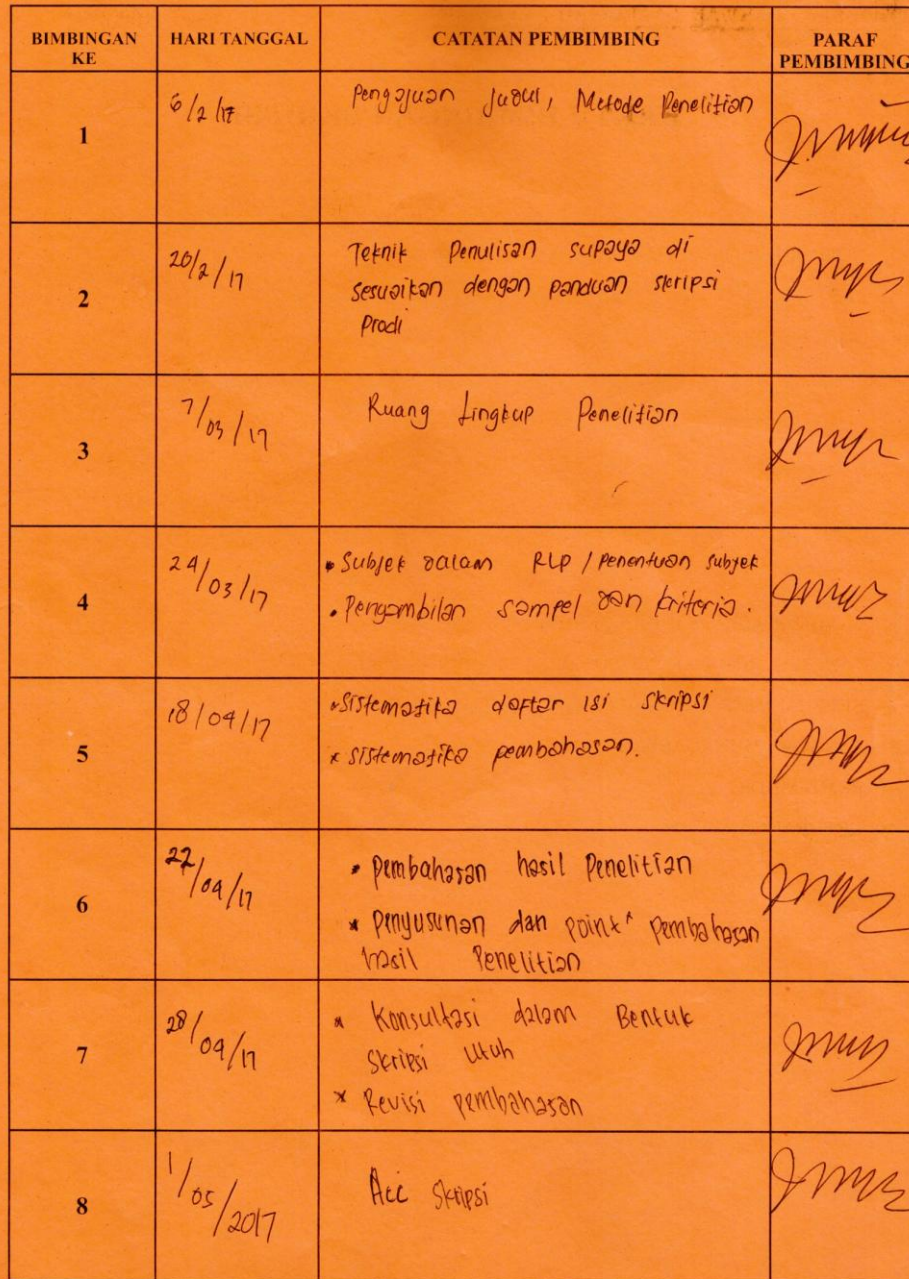 BIMBINGAN KE HARI TANGGAL CATATAN PEMBIMBING PARAF PEMBIMBING
1 6/2/17 Pengajuan judul, Metode Penelitian
2 20/2/17 Teknik Penulisan supaya di
sesuaikan dengan panduan skripsi
Prodi
3 7/03/17 Ruang Lingkup Penelitian
4 24/03/17 • Subjek dalam RLP / penentuan subjek
• Pengambilan sampel dan kriteria.
5 18/04/17 • Sistematika daftar isi skripsi
* sistematika pembahasan.
6 22/04/17 • Pembahasan hasil Penelitian
* Penyusunan dan point^ pembahasan
hasil Penelitian
7 28/04/17 * Konsultasi dalam Bentuk
Skripsi Utuh
* Revisi pembahasan
8 1/05/2017 Acc Skripsi